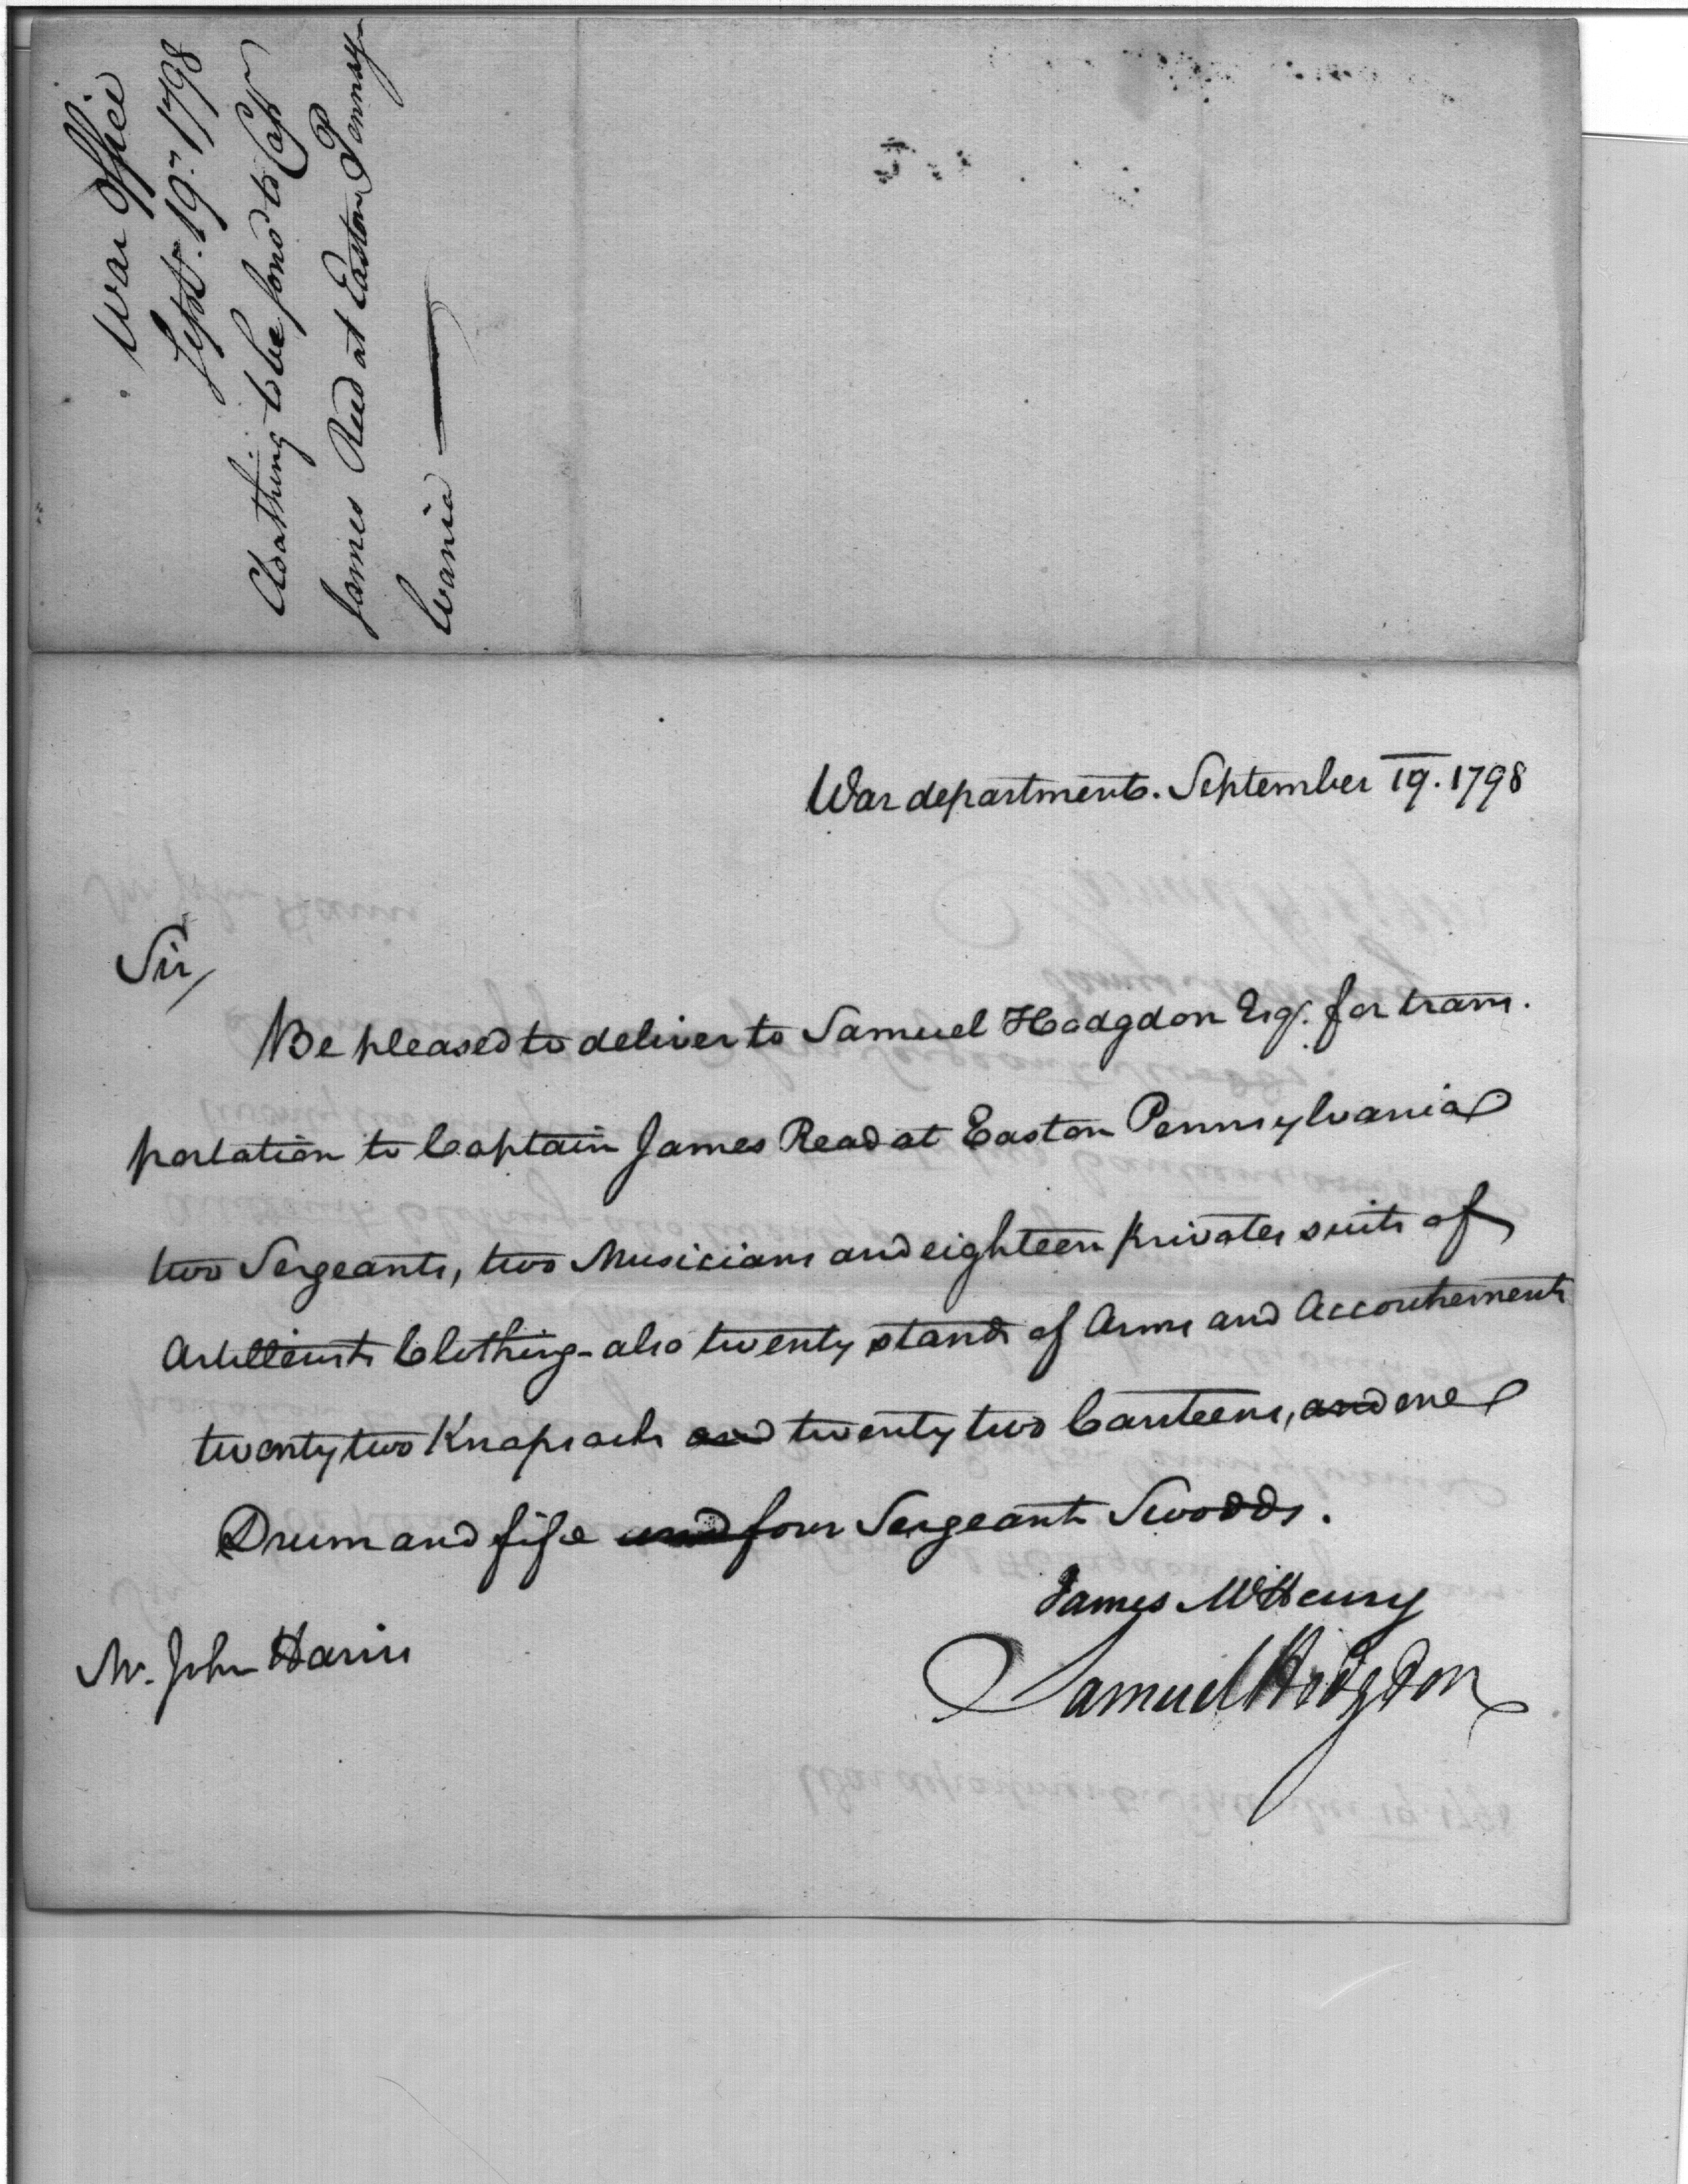 War Office
Septr. 19th 1798
Cloathing to be forwd to Capt
James Reed at Easton Pennsyl
vania
War department. September 19. 1798
Sir,
Be pleased to deliver to Samuel Hodgdon Esqr. for trans.
portation to Captain James Read at Easton Pennsylvania
two Sergeants, two Musicians and eighteen privates suits of
Artillerists Clothing - also twenty stands of Arms and Accoutrements
twenty two Knapsacks and twenty two Canteens, and one
Drum and fife and four Sergeants Swords.
James McHenry
Samuel Hodgdon
Mr. John Harris